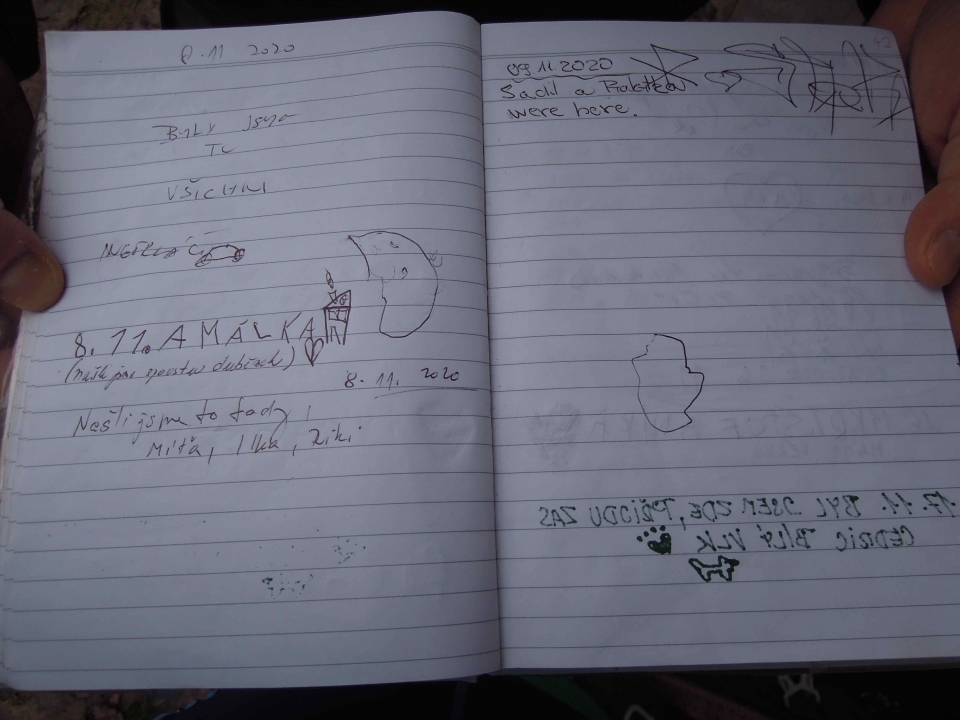 8.11 2020
BYLY jsme
TU
VŠICHNI
8.11. AMÁLKA
(našli jsme spoustu dubėnek)
8. 11. 2020
Našli jsme to tady,
Míťa, Ilka, Kiki
42
09.11.2020
Šádil a
were here.
17.11. BYL JSEM ZDE, PŘIJDU ZAS
CEDRIC BÍLÝ VLK